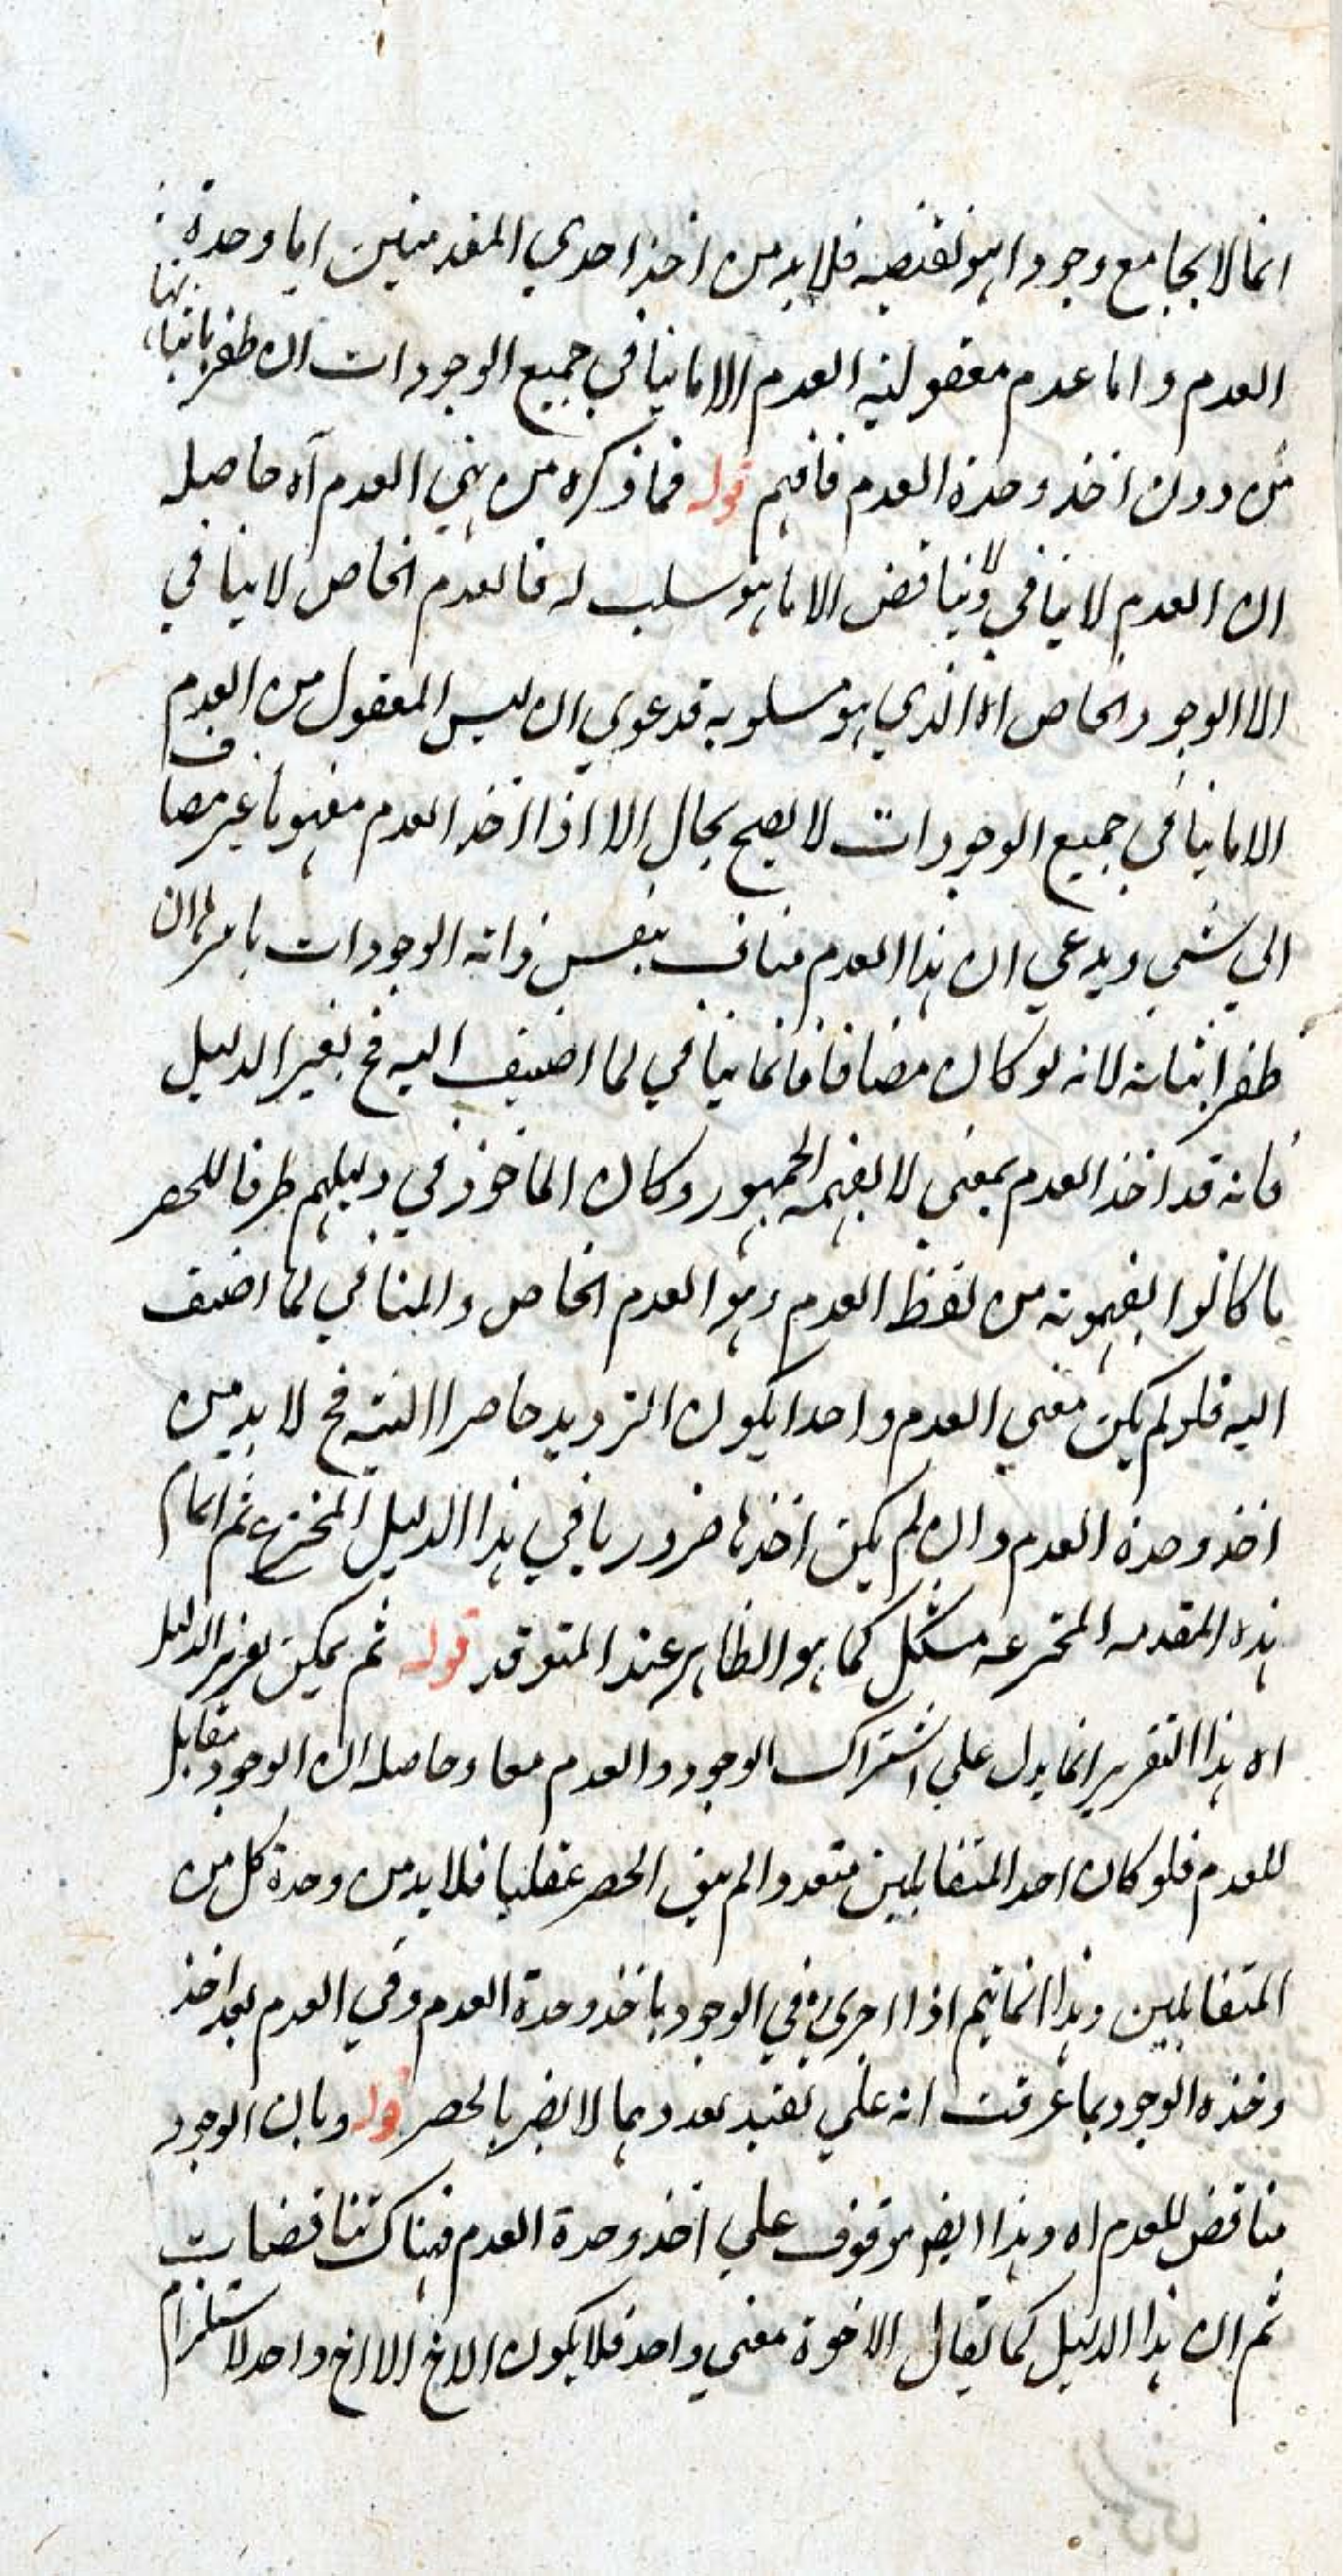 انما لا يجامع وجودا هو نقيضه فلا بد من اخذ احدي المقدمتين اما وحدة
العدم واما عدم معقولية العدم الا ما ينافي جميع الوجودات ان ظفر باثباتها
من دون اخذ وحدة العدم فافهم قوله فما ذكره من بني العدم آه حاصله
ان العدم لا ينافي ولا يناقض الا ما هو سلب له فالعدم الخاص لا ينافي
الا الوجود الخاص الذي هو مسلوبه فدعوي ان ليس المعقول من العدم
الا ما ينافي جميع الوجودات لا يصح بحال الا اذا اخذ العدم مفهوما غير مضاف
الي شي ويدعي ان هذا العدم مناف بنفس ذاته الوجودات باسرها ان
ظفر اثباته لانه لو كان مضافا فانما ينافي لما اضيف اليه فح يغير الدليل
فانه قد اخذ العدم بمعني لا يفهمه الجمهور وكان الماخوذ في دليلهم طرفا للحصر
ما كانوا يفهمونه من لفظ العدم وهو العدم الخاص والمنافي لما اضيف
اليه فلو لم يكن معني العدم واحدا يكون الترديد حاصرا البتة فح لا بد من
اخذ وحدة العدم وان لم يكن اخذها ضروريا في هذا الدليل المخترع ثم اتمام
هذه المقدمه المخترعه مشكل كما هو الظاهر عند المتوقد قوله ثم يمكن تقرير الدليل
اه هذا التقرير انما يدل علي اشتراك الوجود والعدم معا وحاصله ان الوجود مقابل
للعدم فلو كان احد المتقابلين متعددا لم يبق الحصر عقليا فلا بد من وحدة كل من
المتقابلين وهذا انما يتم اذا اجري في الوجود باخذ وحدة العدم وفي العدم بعد اخذ
وحده الوجود بما عرفت انه علي تقدير تعددهما لا يضر بالحصر قوله وبان الوجود
مناقض للعدم اه وهذا ايضا موقوف علي اخذ وحدة العدم فهناك تناقضات
ثم ان هذا الدليل كما يقال الاخوة معني واحد فلا يكون الاخ الا اخ واحد لاستلزام